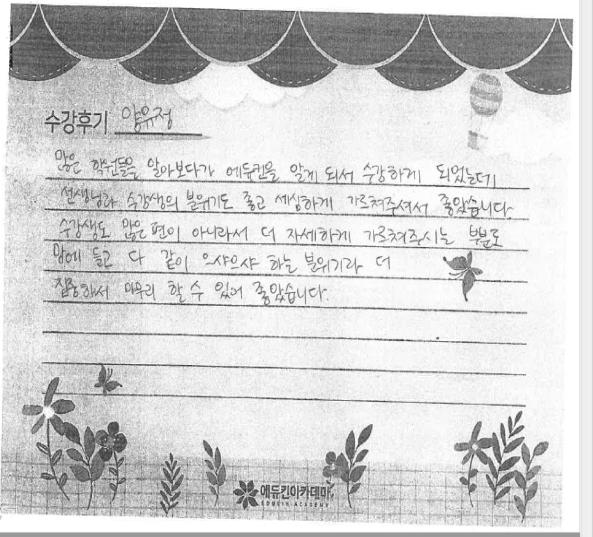 수강후기 양유정
많은 학원들을 알아보다가 에듀킨을 알게 되서 수강하게 되었는데
선생님과 수강생의 분위기도 좋고 세심하게 가르쳐주셔서 좋았습니다.
수강생도 많은 편이 아니라서 더 자세하게 가르쳐주시는 부분도
맘에 들고 다 같이 으샤으샤 하는 분위기라 더
집중해서 마무리 할 수 있어 좋았습니다.
에듀킨아카데미
EDUKIN ACADEMY